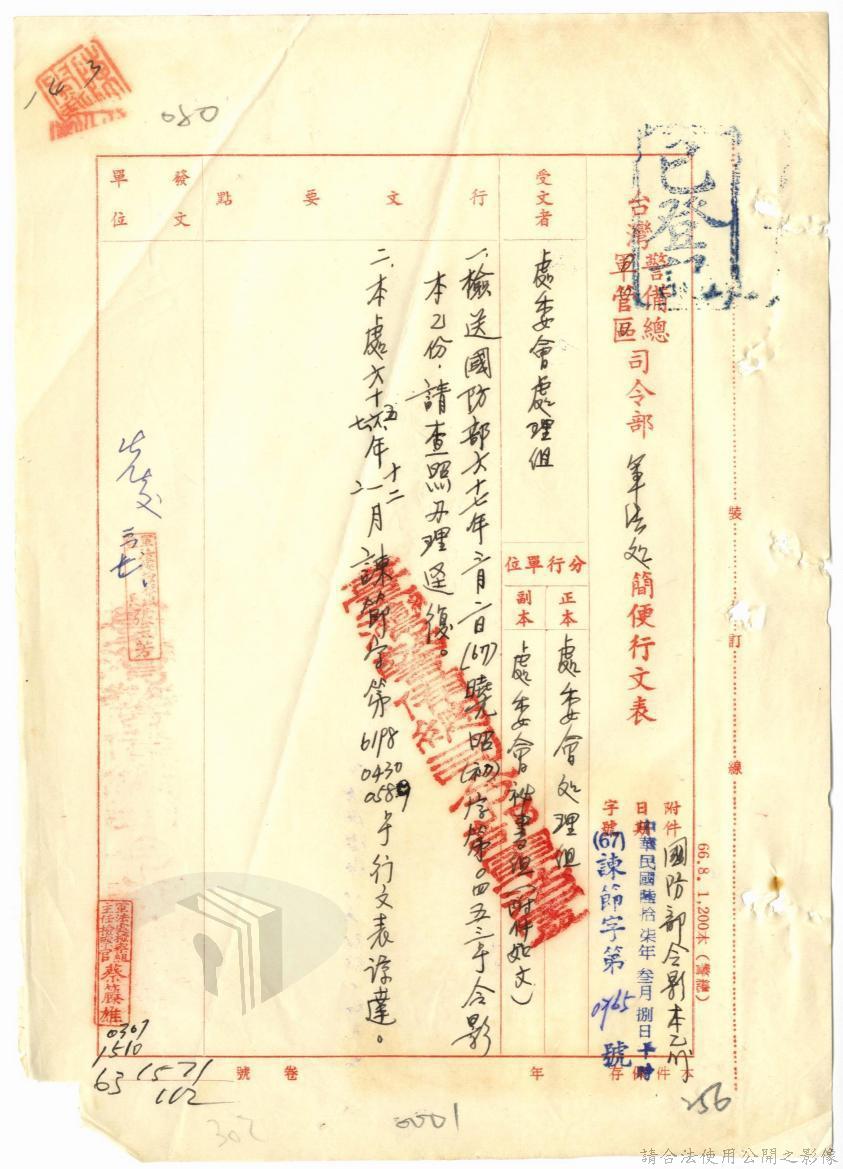 143
080
已登
台灣警備總軍管區司令部軍法処簡便行文表
附件 國防部令影本乙份
日期 中華民國陸拾柒年叁月捌日
字號 (67)諫節字第0965號
受文者
處委會處理組
分行單位
正本 處委會処理組
副本 處委會祕書組(附件如文)
行文要點
一、檢送國防部六十七年 月 日(67)曉昭(初)字第0四五三号令影
本乙份,請查照办理逕復。
二、本處六十五 年十二 月諫節字第6198 0430 0589号行文表諒達。
發文單位
先發
主任檢察官蔡藤雄
0307
1510
63
1571
112
本件保存 年 卷號
裝
訂
線
66.8.1,200本
256
0001
302
請合法使用公開之影像